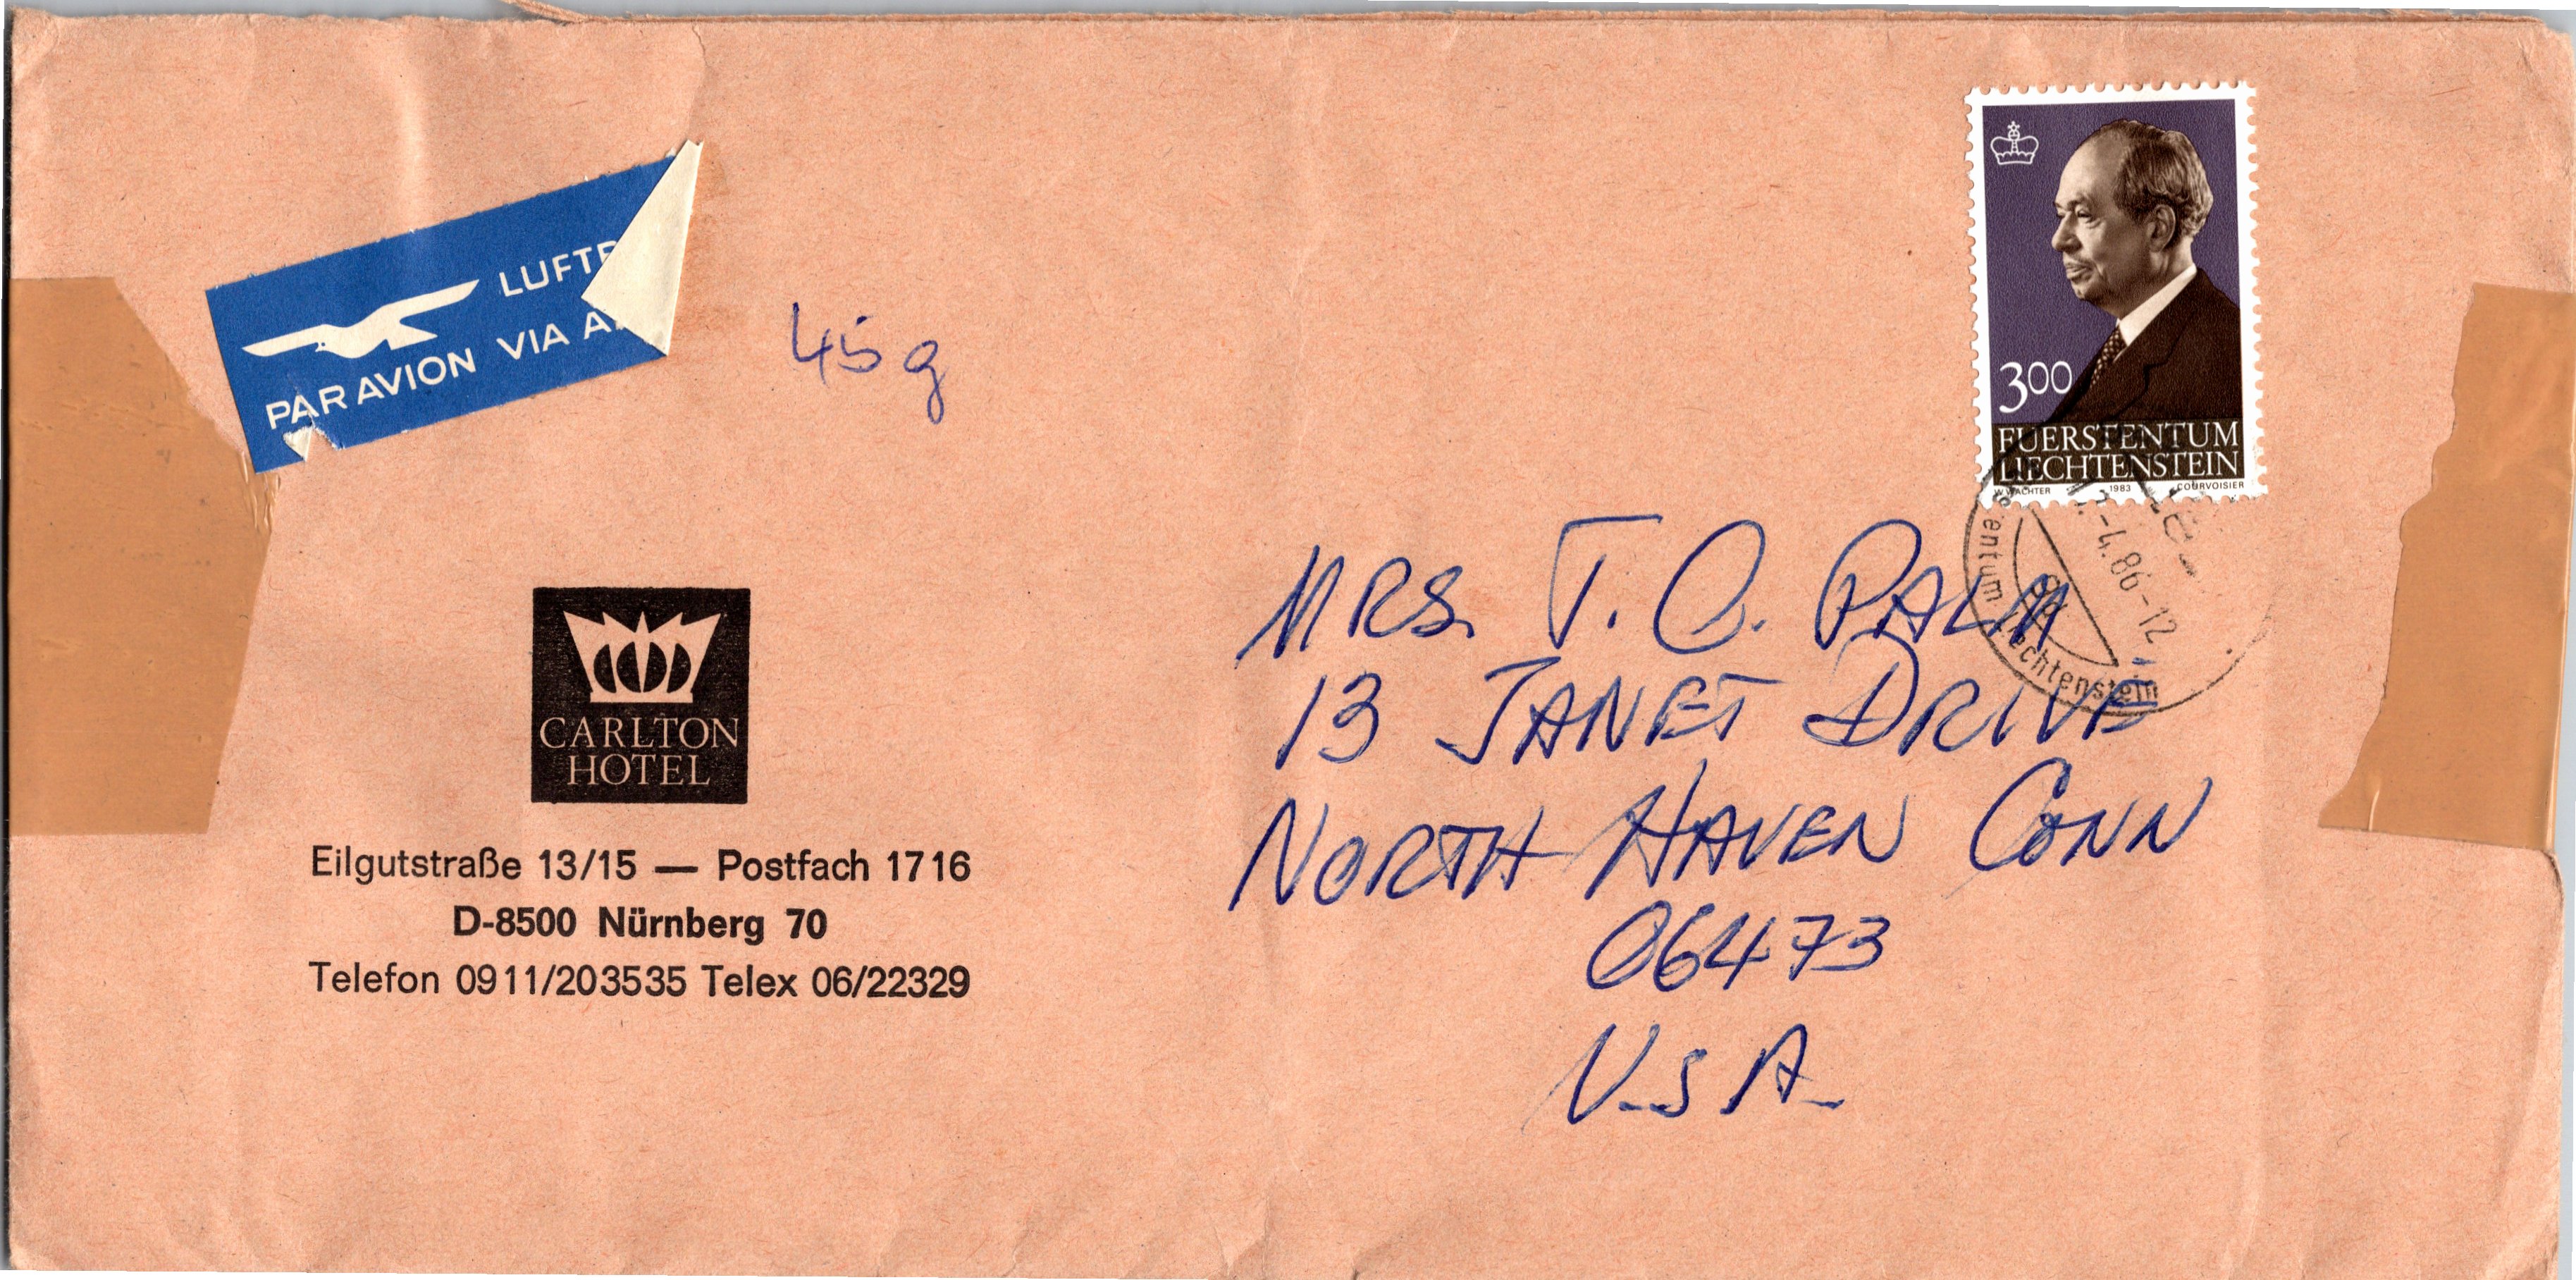 LUFTP
PAR AVION VIA AI
45 g
3.00
FUERSTENTUM
LIECHTENSTEIN
W. WACHTER 1983 COURVOISIER
-4.86-12
CARLTON
HOTEL
Eilgutstraße 13/15 — Postfach 1716
D-8500 Nürnberg 70
Telefon 0911/203535 Telex 06/22329
MRS. T. O. PALM
13 JANET DRIVE
NORTH HAVEN CONN
06473
U.S.A.